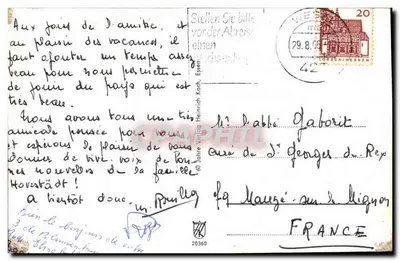 Aux joies de l'amitié, et
au plaisir des vacances, il
faut ajouter un temps assez
beau pour nous permettre
de jouir du pays qui est
très beau.
Nous avons tous une très
amicale pensée pour vous
et espérons le plaisir de vous
donner de vive-voix de bonnes
nouvelles de la famille
A bientôt donc.
60 Jahre Verlag Heinrich Koch, Essen
Stellen Sie bitte
vor der Abreise
einen
20
29.8.
42
M. l'abbé Gaborit
curé de St Georges du Rex
79 Mauzé-sur le Mignon
FRANCE
20360